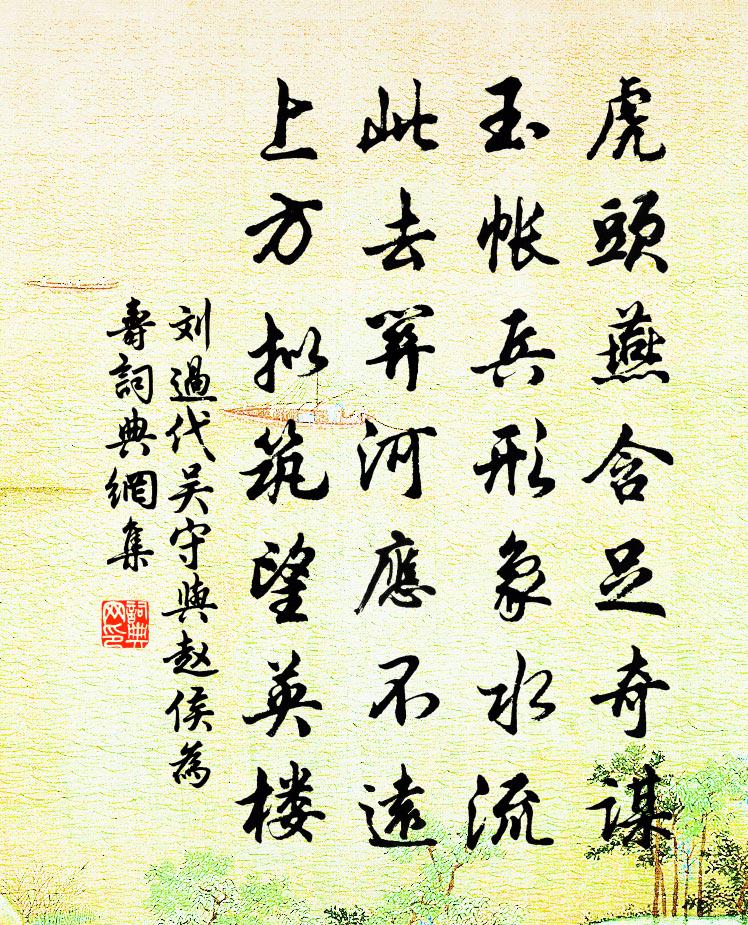 虎頭燕含足奇謀
玉帳兵形象水流
此去開河應不遠
上方拟筑望英楼
刘過代吴守與赵侯為
壽詞典網集
詞典网印